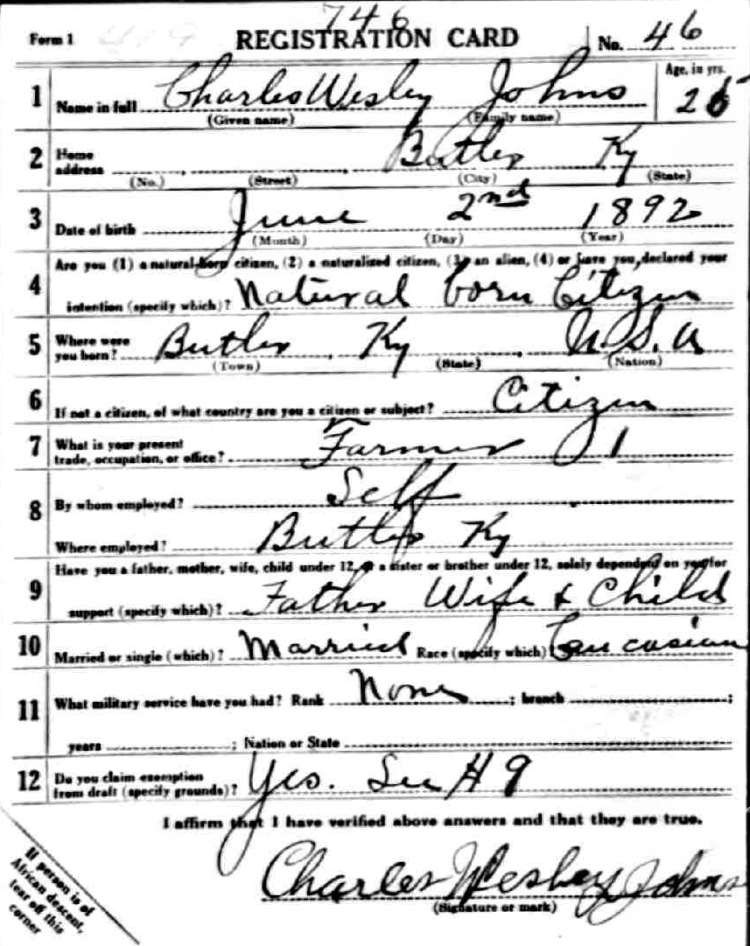 746
Form 1 419 REGISTRATION CARD No. 46
1 Name in full Charles Wesley Johns Age, in yrs. 25
(Given name) (Family name)
2 Home address Butler Ky
(No.) (Street) (City) (State)
3 Date of birth June 2nd 1892
(Month) (Day) (Year)
4 Are you (1) a natural-born citizen, (2) a naturalized citizen, (3) an alien, (4) or have you declared your
intention (specify which)? Natural born Citizen
5 Where were you born? Butler, Ky, U.S.A
(Town) (State) (Nation)
6 If not a citizen, of what country are you a citizen or subject? Citizen
7 What is your present trade, occupation, or office? Farmer 1
8 By whom employed? Self
Where employed? Butler Ky
9 Have you a father, mother, wife, child under 12, or a sister or brother under 12, solely dependent on you for
support (specify which)? Father Wife & Child
10 Married or single (which)? Married Race (specify which) Caucasian
11 What military service have you had? Rank None ; branch ;
years ; Nation or State
12 Do you claim exemption from draft (specify grounds)? Yes. See # 9
I affirm that I have verified above answers and that they are true.
Charles Wesley Johns
(Signature or mark)
If person is of
African descent,
tear off this
corner